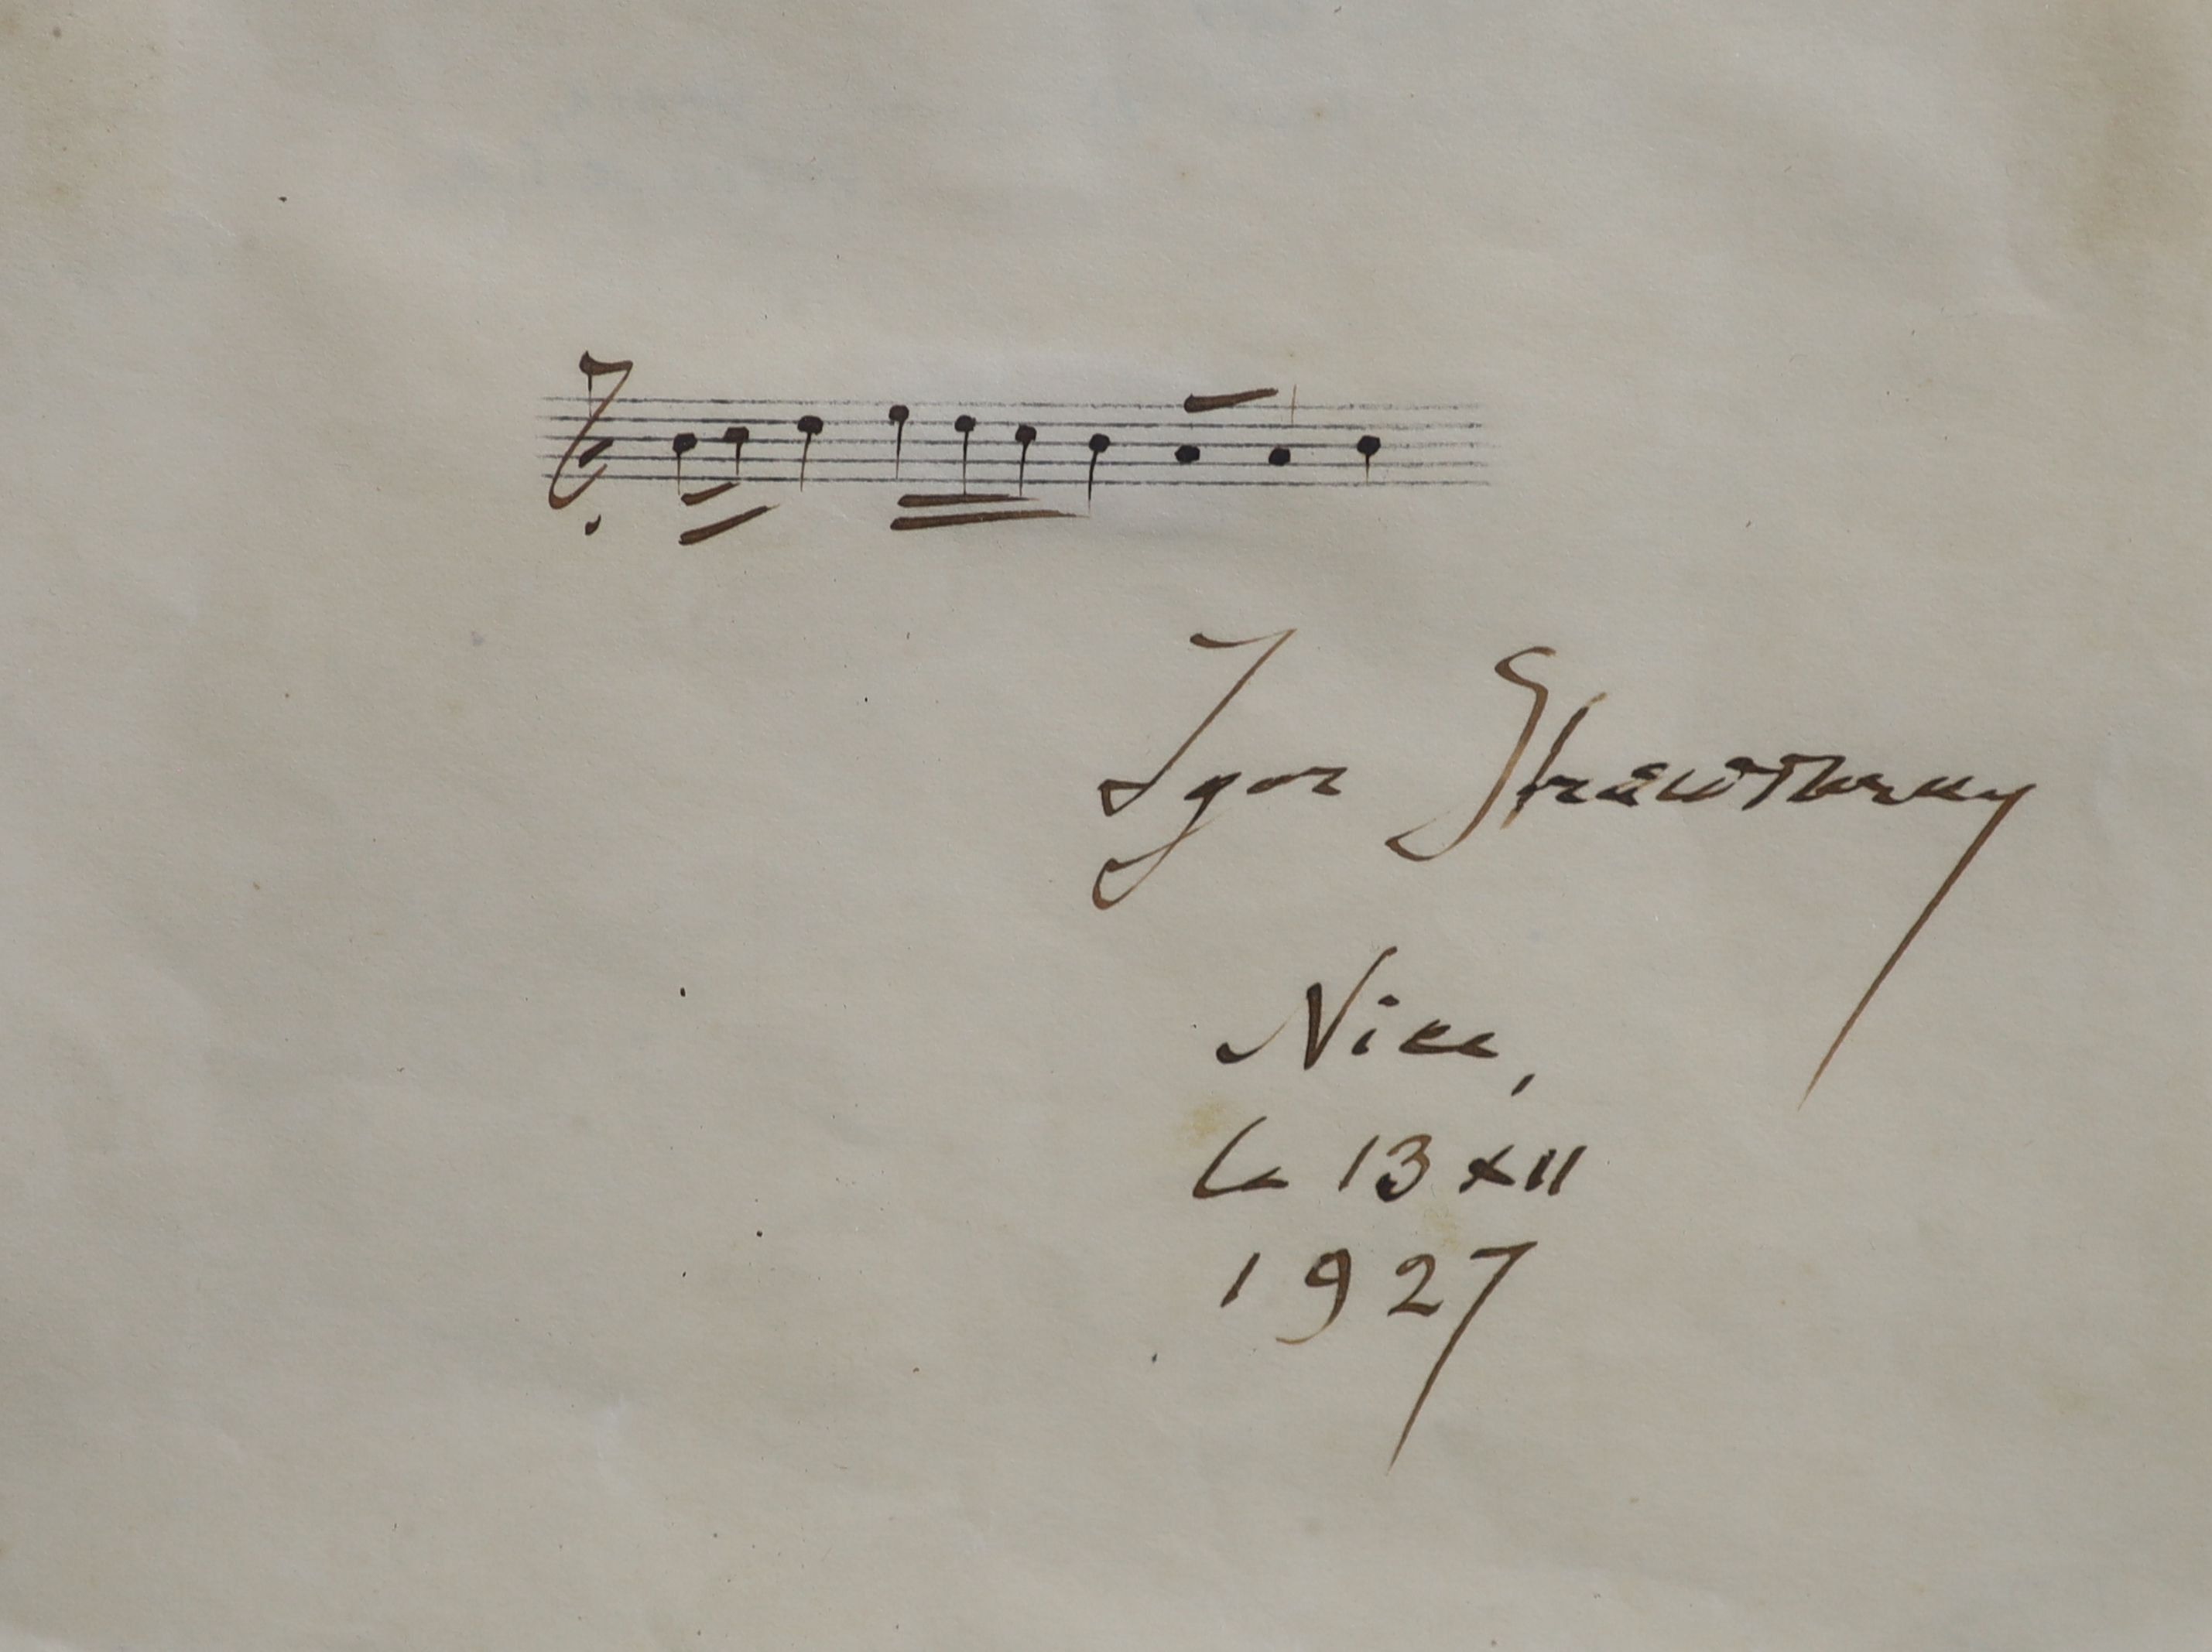 Igor Strawinsky
Nice,
le 13 XII
1927